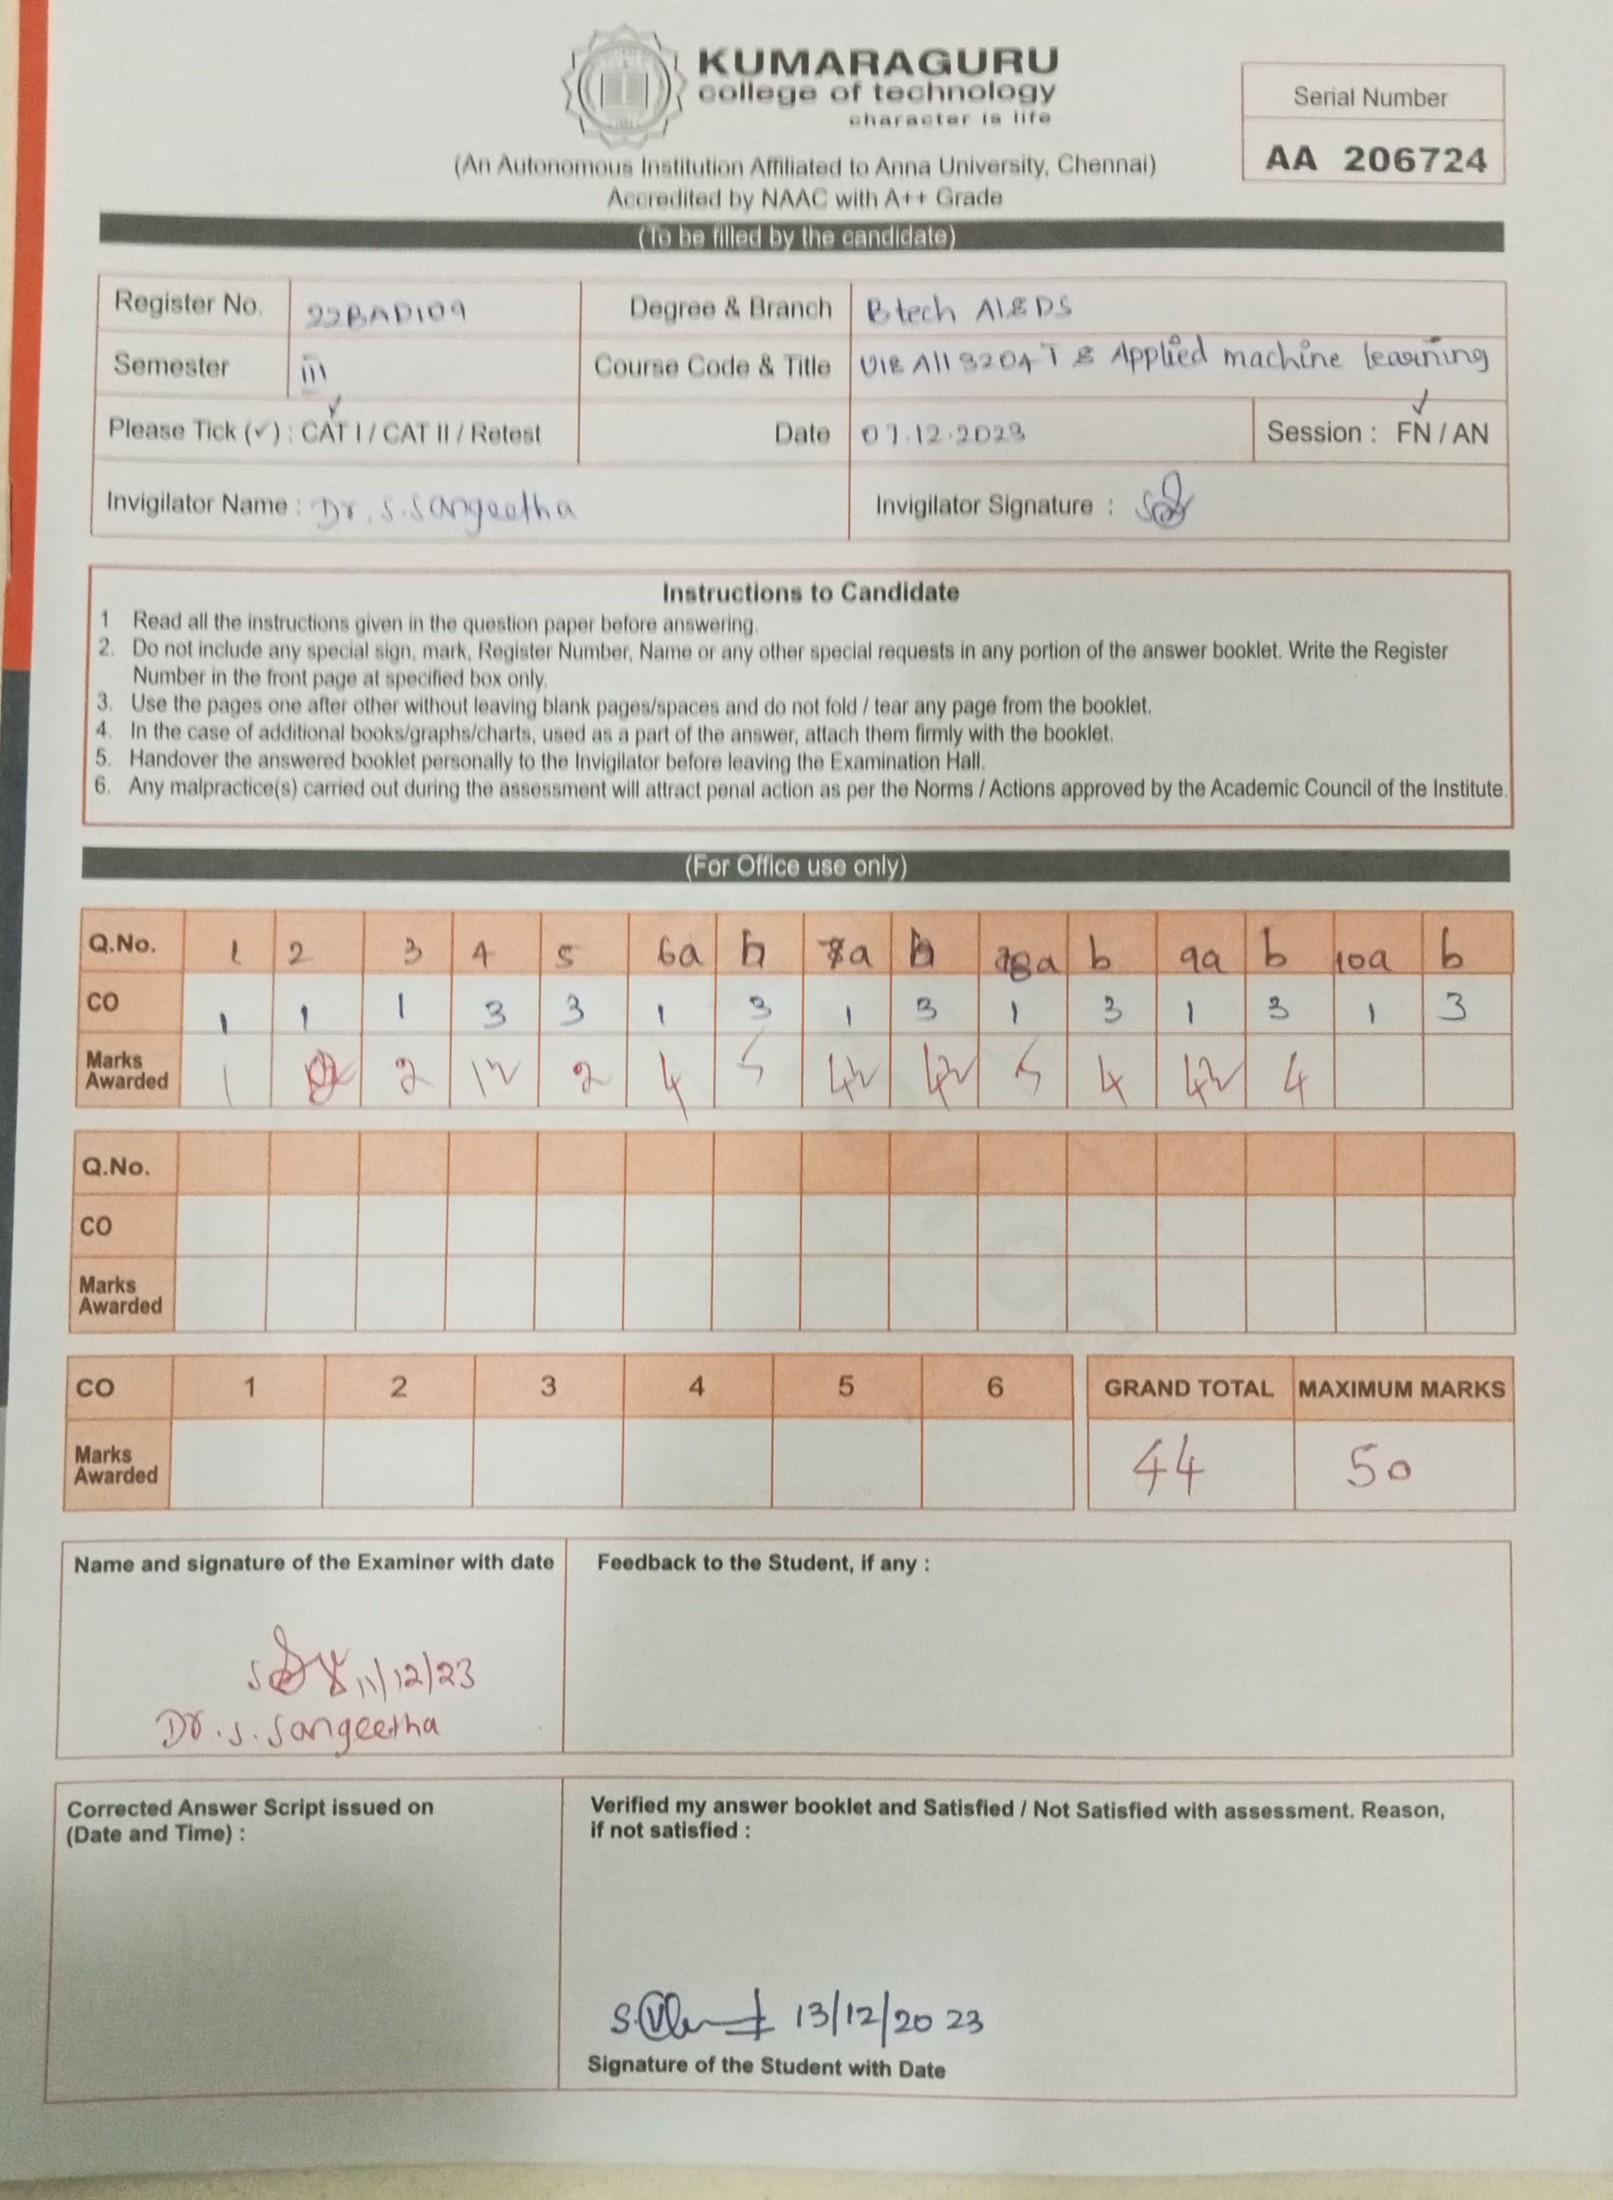 KUMARAGURU
college of technology
character is life
(An Autonomous Institution Affiliated to Anna University, Chennai)
Accredited by NAAC with A++ Grade
Serial Number
AA 206724
(To be filled by the candidate)
Register No. 22BAD109 Degree & Branch Btech AI&DS
Semester iii Course Code & Title Applied machine learning
Please Tick (✓) : CAT I / CAT II / Retest Date 07.12.2023 Session : FN / AN
Invigilator Name : Dr. S. Sangeetha Invigilator Signature :
Instructions to Candidate
1 Read all the instructions given in the question paper before answering.
2. Do not include any special sign, mark, Register Number, Name or any other special requests in any portion of the answer booklet. Write the Register
Number in the front page at specified box only.
3. Use the pages one after other without leaving blank pages/spaces and do not fold / tear any page from the booklet.
4. In the case of additional books/graphs/charts, used as a part of the answer, attach them firmly with the booklet.
5. Handover the answered booklet personally to the Invigilator before leaving the Examination Hall.
6. Any malpractice(s) carried out during the assessment will attract penal action as per the Norms / Actions approved by the Academic Council of the Institute.
(For Office use only)
Q.No. 1 2 3 4 5 6a b 7a b 8a b 9a b 10a b
CO 1 1 1 3 3 1 3 1 3 1 3 1 3 1 3
Marks
Awarded 1 2 2 4 5 5 4 4
Q.No.
CO
Marks
Awarded
CO 1 2 3 4 5 6 GRAND TOTAL MAXIMUM MARKS
Marks
Awarded 44 50
Name and signature of the Examiner with date
11/12/23
Dr. S. Sangeetha
Feedback to the Student, if any :
Corrected Answer Script issued on
(Date and Time) :
Verified my answer booklet and Satisfied / Not Satisfied with assessment. Reason,
if not satisfied :
13/12/2023
Signature of the Student with Date